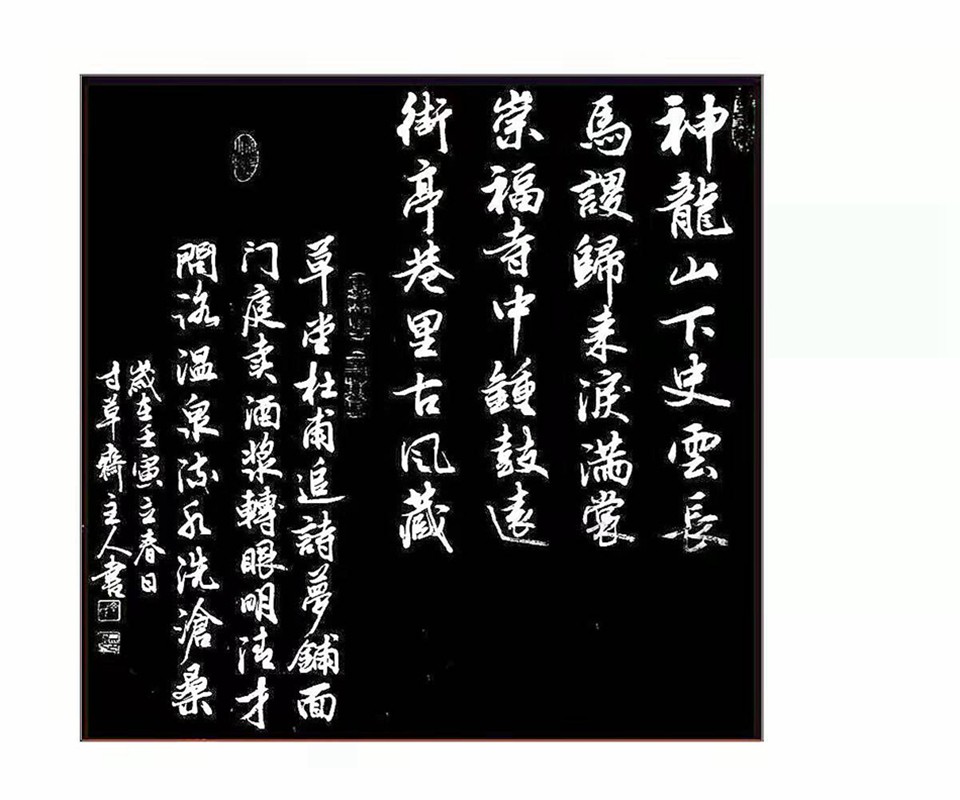 神龍山下史雲長
馬謖歸来淚满裳
崇福寺中鍾鼓遠
街亭巷里古风藏
草堂杜甫追詩夢鋪面
门庭卖酒漿轉眼明清才
問温泉流水洗滄桑
歲在壬寅立春日
寸草齋主人書